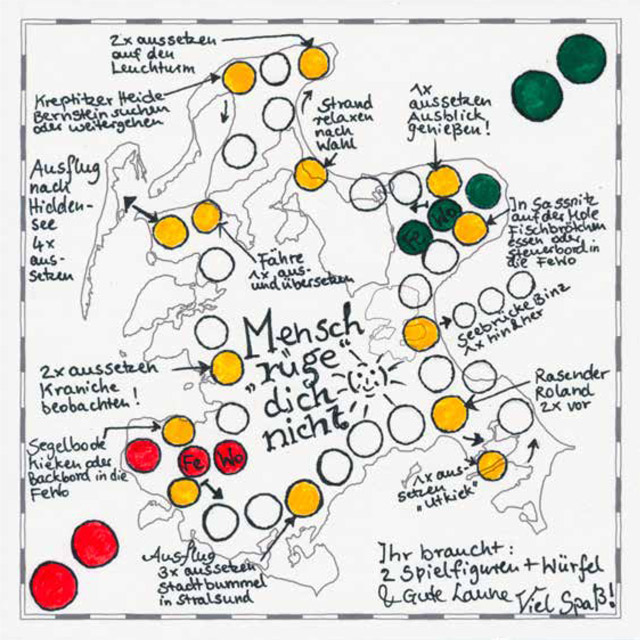 2x aussetzen
auf den
Leuchturm
Kreptitzer Heide
Bernstein suchen
oder weitergehen
Strand
relaxen
nach
Wahl
1x
aussetzen
Ausblick
genießen!
Ausflug
nach
Hidden-
see
4x
aus-
setzen
In Sassnitz
auf der Mole
Fischbrötchen
essen oder
steuerbord in
die FeWo
Fe Wo
Fähre
1x aus-
und übersetzen
Seebrücke Binz
1x hin & her
Mensch
"rüge"
dich
nicht
2x aussetzen
Kraniche
beobachten!
Rasender
Roland
2x vor
Segelboote
kieken oder
Backbord in die
FeWo
Fe Wo
1x aus-
setzen
"Utkiek"
Ausflug
3x aussetzen
Stadtbummel
in Stralsund
Ihr braucht:
2 Spielfiguren + Würfel
& Gute Laune Viel Spaß!